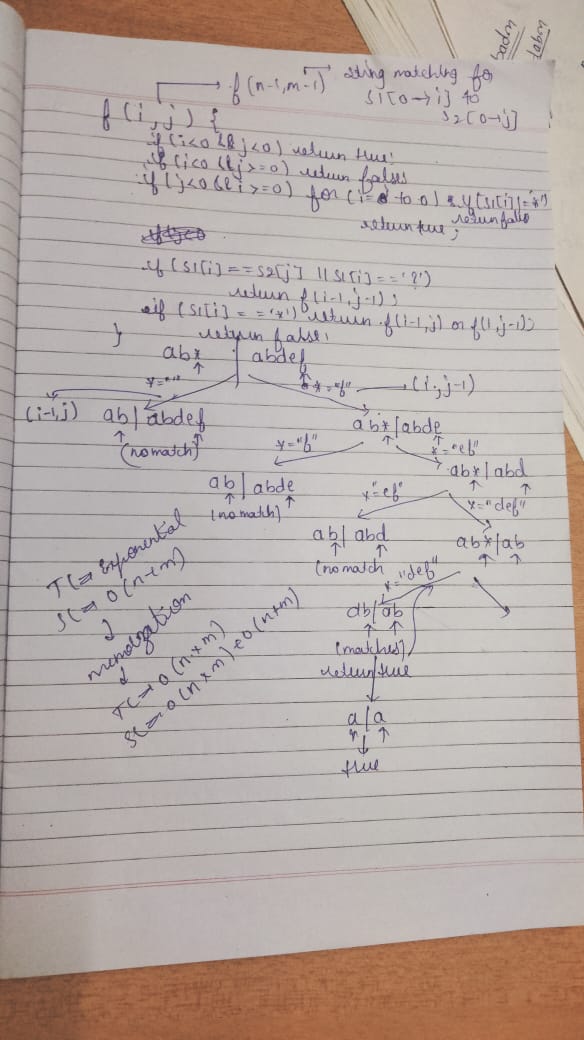 f(n-1,m-1) string matching for
s1[0→i] to
s2[0→j]
f(i,j) {
if(i<0 && j<0) return true;
if(i<0 && j>=0) return false;
if(j<0 && i>=0) for(i= to 0) if(s1[i]!='*')
return false
return true;
if(s1[i]==s2[j] || s1[i]=='?')
return f(i-1,j-1);
if(s1[i]=='*') return f(i-1,j) or f(i,j-1);
return false;
}
ab* | abdef
*="" *="f" (i,j-1)
(i-1,j) ab | abdef ab* | abde
(no match) *="f" *="ef"
ab | abde ab* | abd
(no match) *="ef" *="def"
ab | abd ab* | ab
(no match
*="def"
ab | ab
(matches)
return true
a | a
true
TC → exponential
SC → O(n+m)
memoization
TC → O(n×m)
SC → O(n×m)+O(n+m)